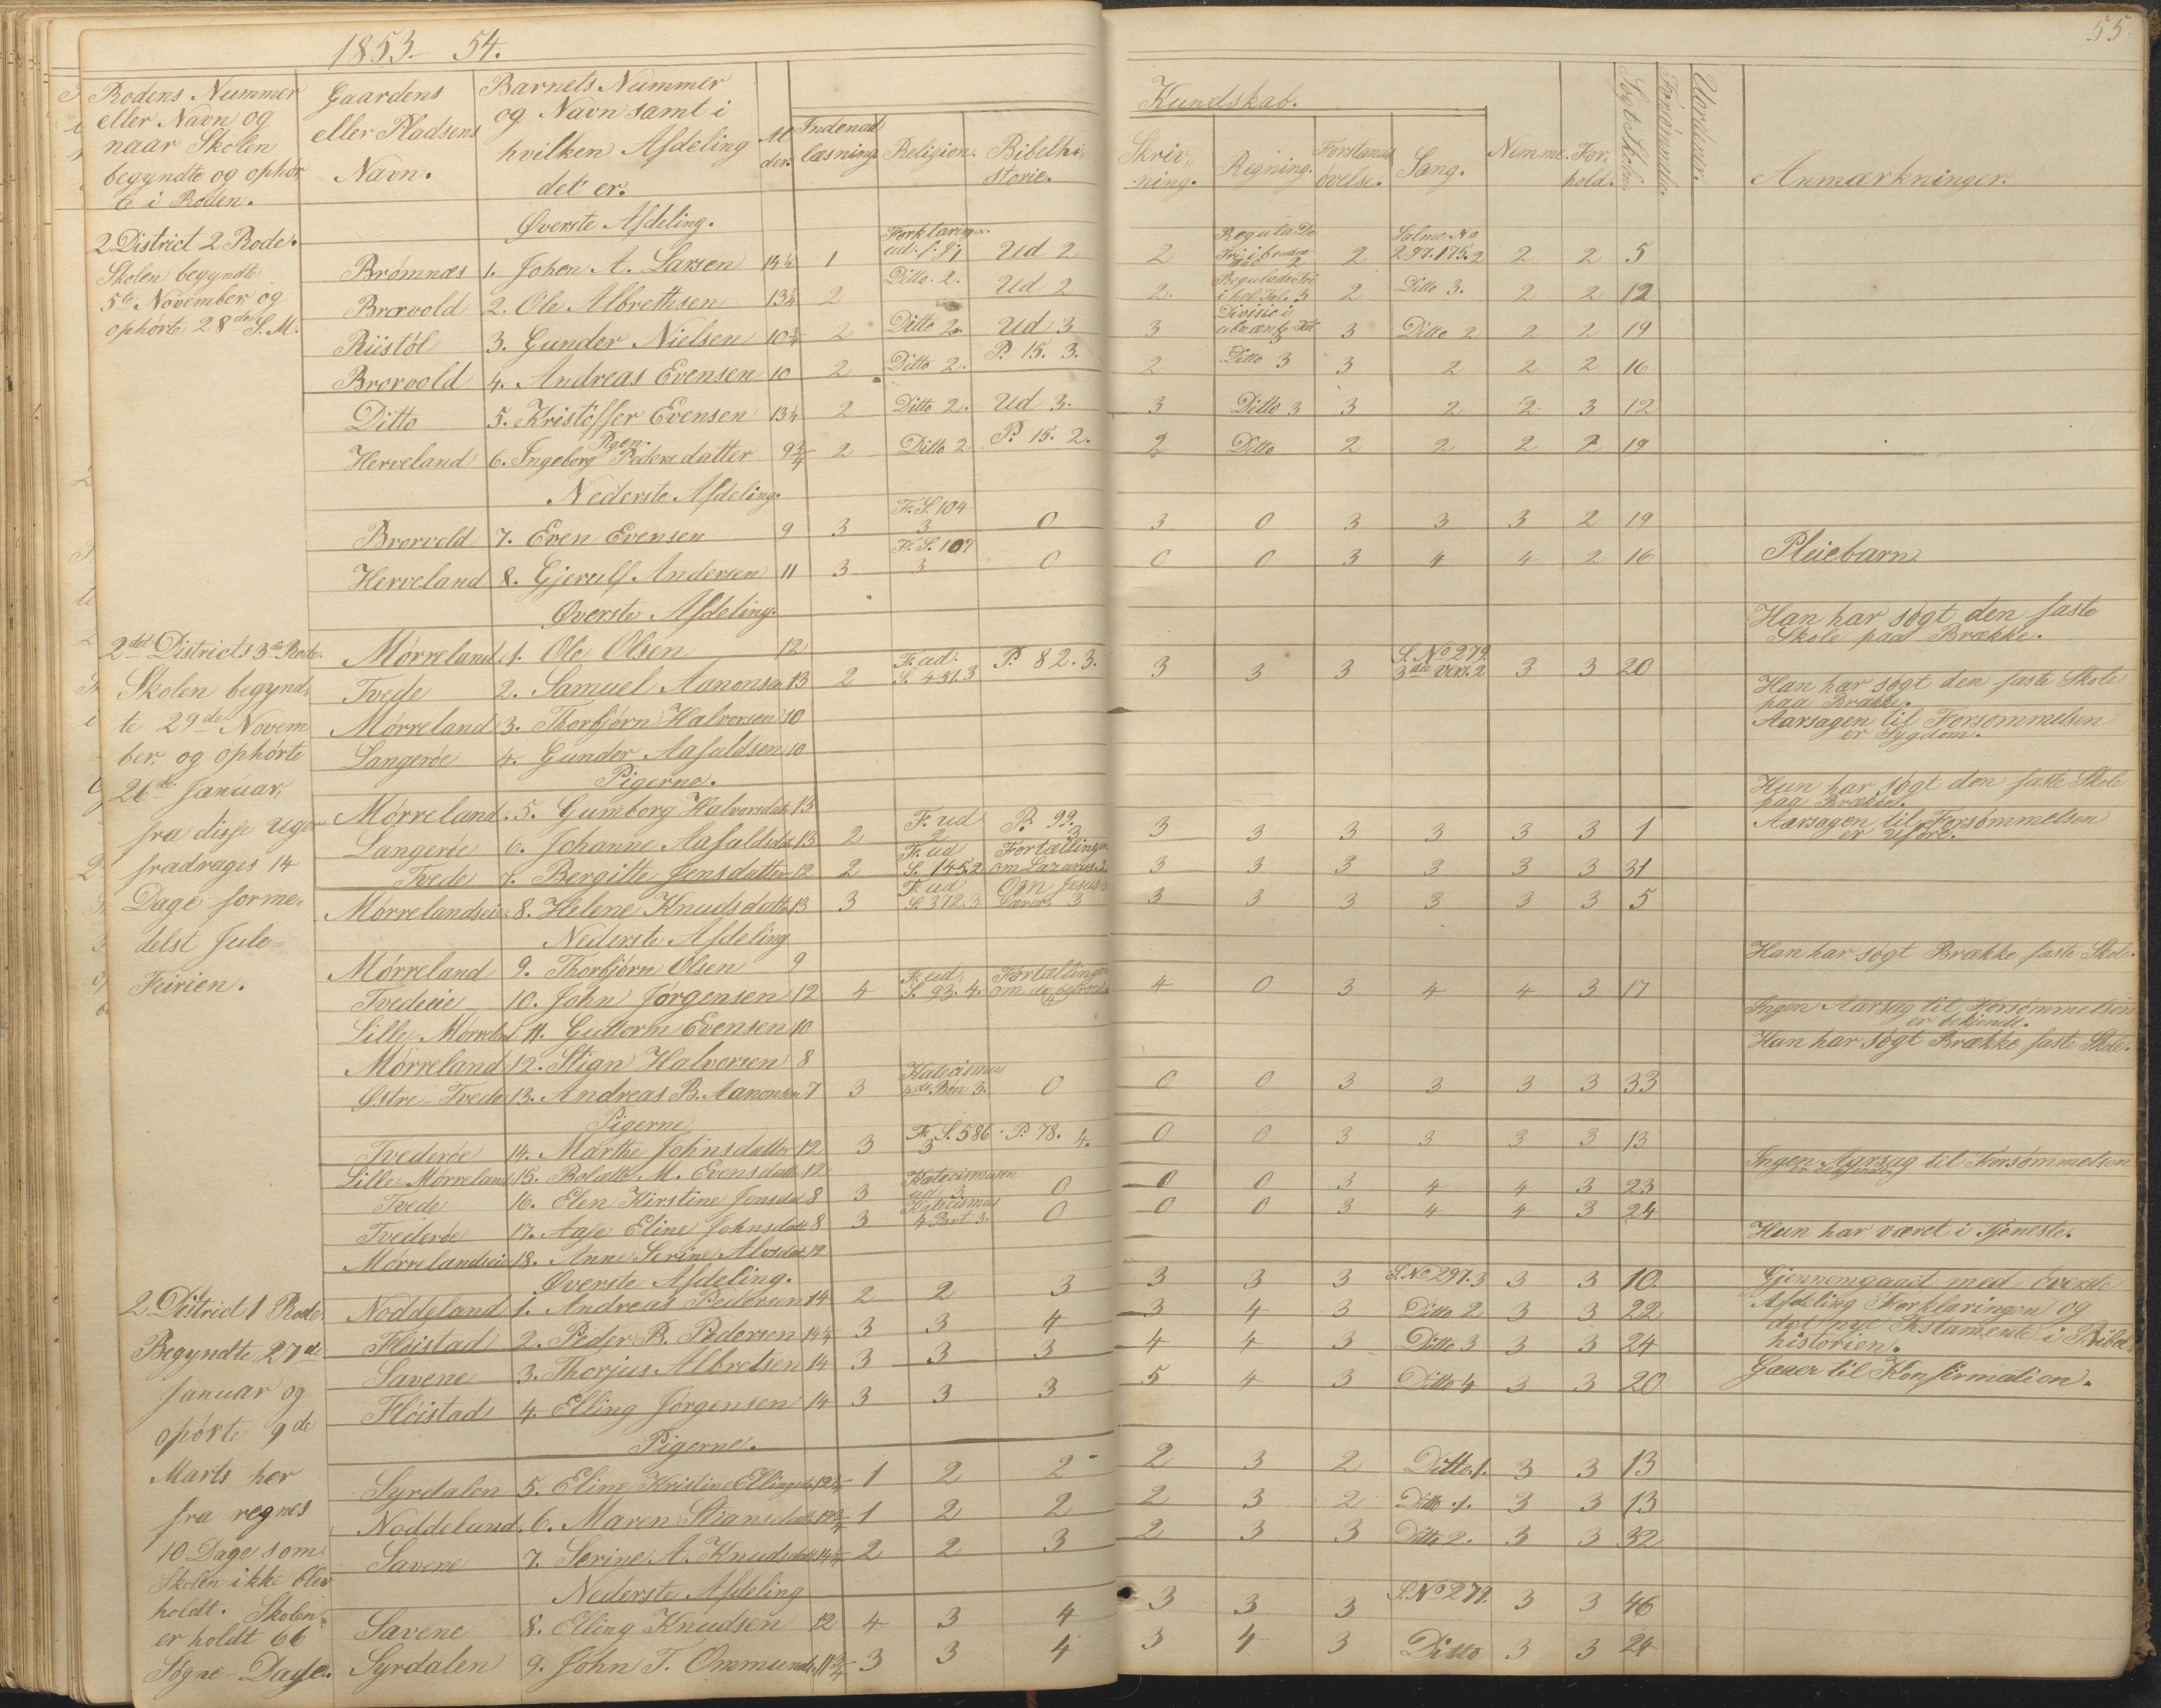 1853-54.
55.
Rodens Nummer eller Navn og naar Skolen begyndte og ophørte i Roden.
Gaardens eller Pladsens Navn.
Barnets Nummer og Navn samt i hvilken Afdeling det er.
Al der.
Kundskab.
Indenad læsning. Religion. Bibelhistorie. Skrivning. Regning. Forstands øvelse. Sang.
Nemme. Forhold. Søgt Skolen. Forsømmelse. Uordner. Anmærkninger.
2 District 2 Rode.
Skolen begyndte
5te November og
ophørte 28de S. M.
Øverste Afdeling.
Brømnæs 1. Johen A. Larsen 1 Ud 2 2 2 Salme No 297.175.2 2 2 5
Brorvold 2. Ole Albrethsen 13¼ 2 Ditto. 2. Ud 2 2. 2 Ditto 3. 2 2 12
Riistøl 3. Gunder Nielsen 10¾ 2 Ditto 2. Ud 3 3 3 Ditto 2 2 2 19
Brorvold 4. Andreas Evensen 10 2 Ditto 2. P. 15. 3. 2 Ditto 3 3 2 2 2 16
Ditto 5. Kristoffer Evensen 13¼ 2 Ditto 2. Ud 3. 3 Ditto 3 3 2 2 3 12
Pigen.
Herveland 6. Ingeborg Pedersdatter 9¾ 2 Ditto 2 P. 15. 2. 2 Ditto 2 2 2 2 19
Nederste Afdeling.
Brorvold 7. Even Evensen 9 3 F. S. 104 3 0 3 0 3 3 3 2 19
Herveland 8. Gjerulf Andersen 11 3 F. S. 107 3 0 0 0 3 4 4 2 16 Pleiebarn
Øverste Afdeling.
2det Districts 3de Rode.
Skolen begynd,
te 29de Novem
ber, og ophørte
26de Januar,
fra disse Uger
fradrages 14
Dage forme,,
delst Jule=
Feirien.
Mørreland 1. Ole Olsen 12 Han har søgt den faste Skole paa Brække.
Tvede 2. Samuel Aanonsen 13 2 F. ud. S. 451.3 P. 82. 3. 3 3 3 S. No 279. 3die Vers. 2 3 3 20
Mørreland 3. Thorbjørn Halvorsen 10 Han har søgt den faste Skole paa Brække.
Langerøe 4. Gunder Aasuldsen 10 Aarsagen til Forsømmelsen er Sygdom.
Pigerne.
Mørreland. 5. Gumborg Halvorsdatt 13 Hun har søgt den faste Skole paa Brække.
Langerøe 6. Johanne Aasuldsdat 13 2 F. ud 2 P. 99. 3 3 3 3 3 3 3 1 Aarsagen til Forsømmelsen er Uføre.
Tvede 7. Bergitte Jensdatter 12 2 F. ud S. 145.2 Fortællingen om Lazarus. 2 3 3 3 3 3 3 31
Mørrelandseie 8. Helene Knudsdatter 13 3 F. ud S. 372. 3 Om Jesus Lærer 3 3 3 3 3 3 3 5
Nederste Afdeling
Mørreland 9. Thorbjørn Olsen 9 Han har søgt Brække faste Skole.
Tvedeeie 10. John Jørgensen 12 4 F. ud S. 93. 4. Fortællingen om 4 0 3 4 4 3 17
Lille-Mørreland 11. Guttorm Evensen 10 Ingen Aarsag til Forsømmelsen er bekjendt.
Mørreland 12. Stign Halvorsen 8 Han har søgt Brække faste Skole.
Østre-Tvede 13. Andreas B. Aanonsen 7 3 Katecismus 4de Bøn 3. 0 0 0 3 3 3 3 33
Pigerne
Tvederøe 14. Marthe Johnsdatter 12 3 F. S. 586 3 P. 78. 4. 0 0 3 3 3 3 13
Lille-Mørreland 15. Bolette M. Evensdatter 12 Ingen Aarsag til Forsømmelsen
Tvede 16. Elen Kirstine Jensdat 8 3 Katecismusen ud 3. 0 0 0 3 4 4 3 23
Tvederøe 17. Aase Eline Johnsdatt 8 3 Katecismus 4 Part 3. 0 0 0 3 4 4 3 24
Mørrelandseie 18. Anne Serine Alvsdat 12 Hun har været i Tjeneste.
Øverste Afdeling.
2 District 1 Rode
Begyndte 27de
Januar og
opørte 9de
Marts her
fra regnes
10 Dage som
Skolen ikke blev
holdt. Skolen
er holdt 66
Søgne-Dage.
Noddeland 1. Andreas Pedersen 14 2 2 3 3 3 3 S. No 297. 3 3 3 10.
Fløistad 2. Peder B. Pedersen 14¼ 3 3 4 3 4 3 Ditto 2 3 3 22
Savene 3. Thorjus Albretsen 14 3 3 3 4 4 3 Ditto 3 3 3 24
Fløistad 4. Elling Jørgensen 14 3 3 3 5 4 3 Ditto 4 3 3 20
Gjennemgaaet med øverste
Afdeling Forklaringen og
det nye Testamente i Bibel,,
historien.
Gaaer til Konfirmation.
Pigerne.
Syrdalen 5. Eline Kristine Ellingsdat 1 2 2 2 3 2 Ditto. 1. 3 3 13
Noddeland. 6. Maren Stiansdatt 1 2 2 2 3 2 Ditto. 1. 3 3 13
Savene 7. Serine A. Knudsdatt 14¼ 2 2 3 2 3 3 Ditto 2. 3 3 32
Nederste Afdeling
Savene 8. Elling Knudsen 12 4 3 4 3 3 3 S. No 279. 3 3 46
Syrdalen 9. John T. Ommunds. 11¾ 3 3 4 3 4 3 Ditto 3 3 24